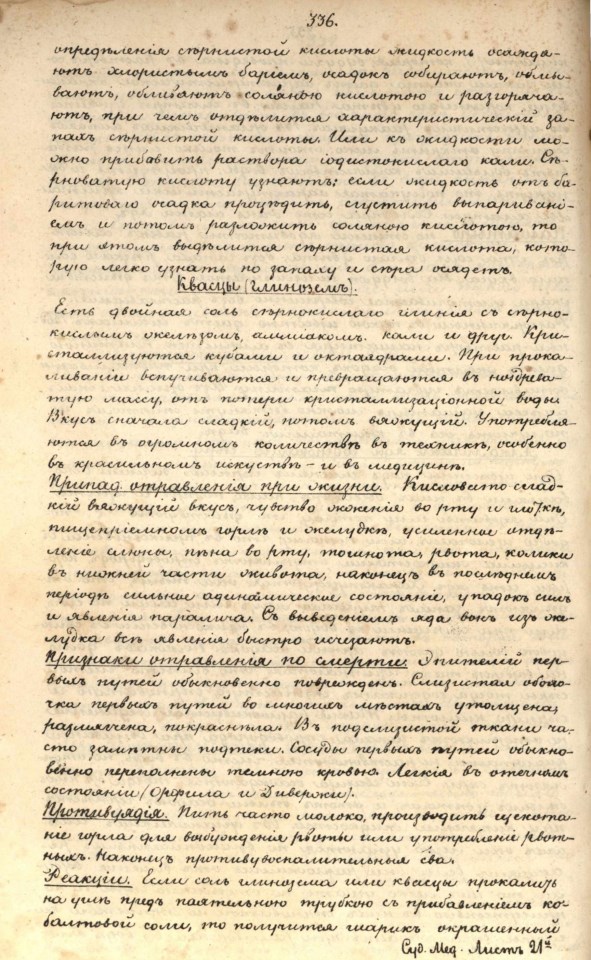 336.
опредѣленія сѣрнистой кислоты жидкость осажда-
ютъ хлористымъ баріемъ, осадокъ собираютъ, обмы-
ваютъ, обливаютъ соляною кислотою и разгоряча-
ютъ, при чемъ отдѣлится характеристическій за-
пахъ сѣрнистой кислоты. Или къ жидкости мо-
жно прибавить раствора іодистокислаго кали. Сѣ-
рноватую кислоту узнаютъ: если жидкость отъ ба-
ритоваго осадка процѣдить, сгустить выпаривані-
емъ и потомъ разложить соляною кислотою, то
при этомъ выдѣлится сѣрнистая кислота, кото-
рую легко узнать по запаху и сѣра осядетъ.
Квасцы (глиноземъ).
Есть двойная соль сѣрнокислаго глинія съ сѣрно-
кислымъ желѣзомъ, амміакомъ. кали и друг. Кри-
сталлизуются кубами и октаэдрами. При прока-
ливаніи вспучиваются и превращаются въ ноздрева-
тую массу, отъ потери кристаллизаціонной воды.
Вкусъ сначала сладкій, потомъ вяжущій. Употребля-
ются въ огромномъ количествѣ въ техникѣ, особенно
въ красильномъ искуствѣ – и въ медицинѣ.
Припад. отравленія при жизни. Кисловато слад-
кій вяжущій вкусъ, чувство жженія во рту и глоткѣ,
пищепріемномъ горлѣ и желудкѣ, усиленное отдѣ-
леніе слюны, пѣна во рту, тошнота, рвота, колики
въ нижней части живота, наконецъ въ послѣднемъ
періодѣ сильное адинамическое состояніе, упадокъ силъ
и явленія паралича. Съ выведеніемъ яда вонъ изъ же-
лудка всѣ явленія быстро исчезаютъ.
Признаки отравленія по смерти. Эпителій пер-
выхъ путей обыкновенно поврежденъ. Слизистая оболо-
чка первыхъ путей во многихъ мѣстахъ утолщена,
размягчена, покраснѣла. Въ подслизистой ткани ча-
сто замѣтны подтеки. Сосуды первыхъ путей обыкно-
венно переполнены темною кровью. Легкія въ отечномъ
состояніи (Орфила и Дивержи).
Противуядія. Пить часто молоко, производить щекота-
ніе горла для возбужденія рвоты или употребленіе рвот-
ныхъ. Наконецъ противувоспалительныя ср҃ва.
Реакціи. Если соль глинозема или квасцы прокалить
на углѣ предъ паятельною трубкою съ прибавленіемъ ко-
балтовой соли, то получится шарикъ окрашенный
Суд. Мед. Листъ 21й